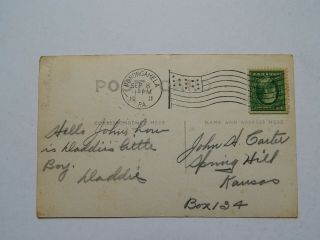 MONONGAHELA
SEP 8
PM
PA.
CORRESPONDENCE HERE
NAME AND ADDRESS HERE
Hello John, how
is Daddie's little
Boy.
Daddie
John H. Carter
Spring Hill
Kansas
Box 124